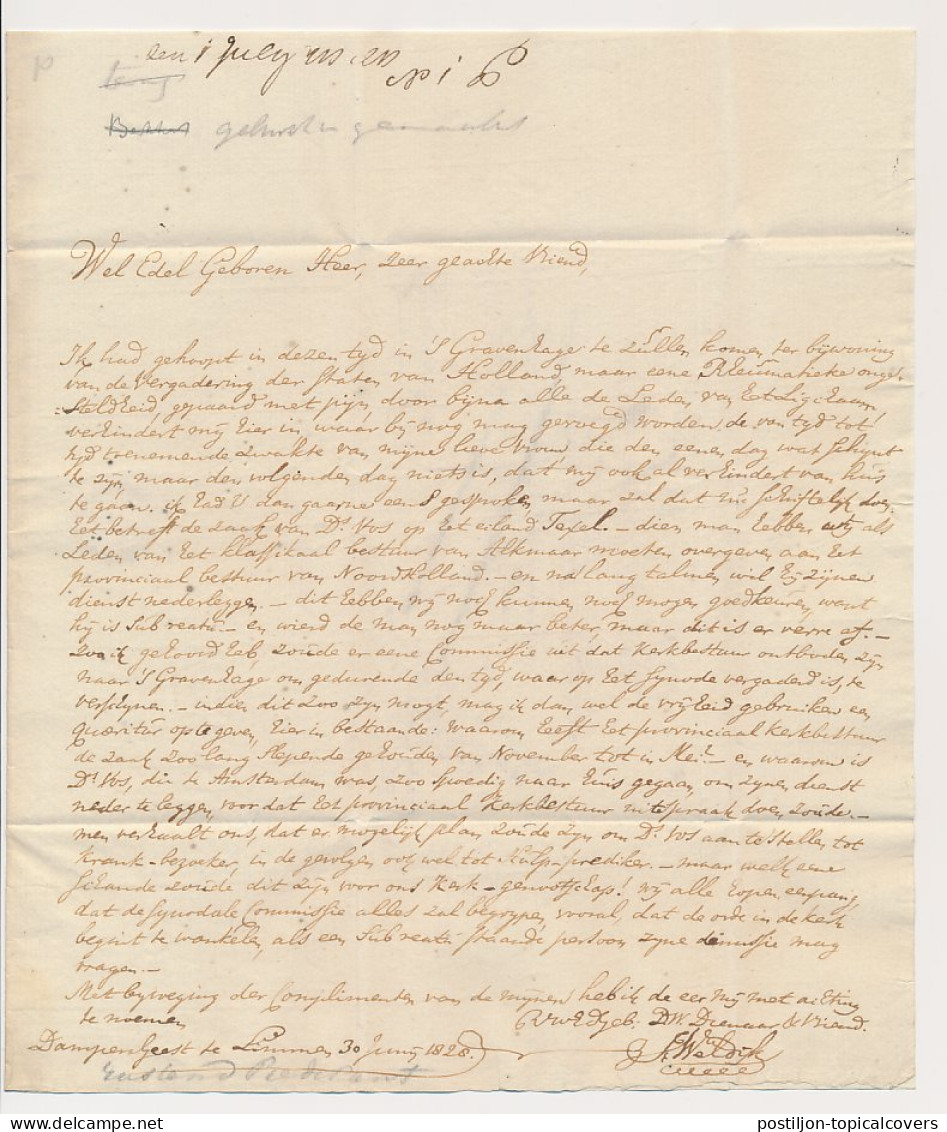 den 1 July
N 1
Wel Edel Geboren Heer, zeer geachte Vriend,
Ik had gehoopt in dezen tyd in 's Gravenhage te zullen komen, ter bijwoning
van de Vergadering der Staten van Holland, maar eene Rheumatieke onge-
steldheid, gepaard met pijn, door bijna alle de Leden van het ligchaam
verhindert mij hier in, waar bij nog mag gevoegd worden de van tyd tot
tyd toenemende zwakte van mijne lieve vrouw, die den eenen dag wat schynt
te zyn, maar den volgenden dag niets is, dat mij ook al verhindert van huis
te gaan. ik had U dan gaarne eens gesproken, maar zal dat nu schriftelyk doen.
Het betreft de zaak van Ds. Vos op het eiland Texel. – dien man hebben wij als
Leden van het klassikaal bestuur van Alkmaar moeten overgeven aan het
provinciaal bestuur van Noord Holland. – en na lang talmen wil hij zijnen
dienst nederleggen. – dit hebben wij noch kunnen noch mogen goedkeuren, want
hij is sub reatu. – en wierd de man nog maar beter, maar dit is er verre af. –
zoo ik gehoord heb, zoude er eene Commissie uit dat kerkbestuur ontboden zijn
naar 's Gravenhage om gedurende den tyd, waar op het synode vergaderd is, te
verschynen. – indien dit zoo zyn mogt, mag ik dan wel de vrijheid gebruiken een
quæritur op te geven, hier in bestaande: waarom heeft het provinciaal kerkbestuur
de zaak zoo lang slepende gehouden van November tot in Mei? – en waarom is
Ds. Vos, die te Amsterdam was, zoo spoedig naar huis gegaan om zynen dienst
neder te leggen, voor dat het provinciaal kerkbestuur uitspraak doen zoude. –
men verhaalt ons, dat er mogelijk plan zoude zyn om Ds. Vos aan te stellen tot
krank-bezoeker, in de gevolgen ook wel tot Hulp-prediker. – maar welk eene
schande zoude dit zijn voor ons kerk-genootschap! wij alle hopen eenparig,
dat de synodale Commissie alles zal begrypen, vooral, dat de orde in de kerk
begint te wankelen, als een sub reatu staande persoon zyne demissie mag
vragen. –
Met byvoeging der Complimenten van de mijnen heb ik de eer mij met achting
te noemen
UwEdGeb: DW. Dienaar & Vriend.
te Limmen 30 Junij 1828.
postiljon-topicalcovers